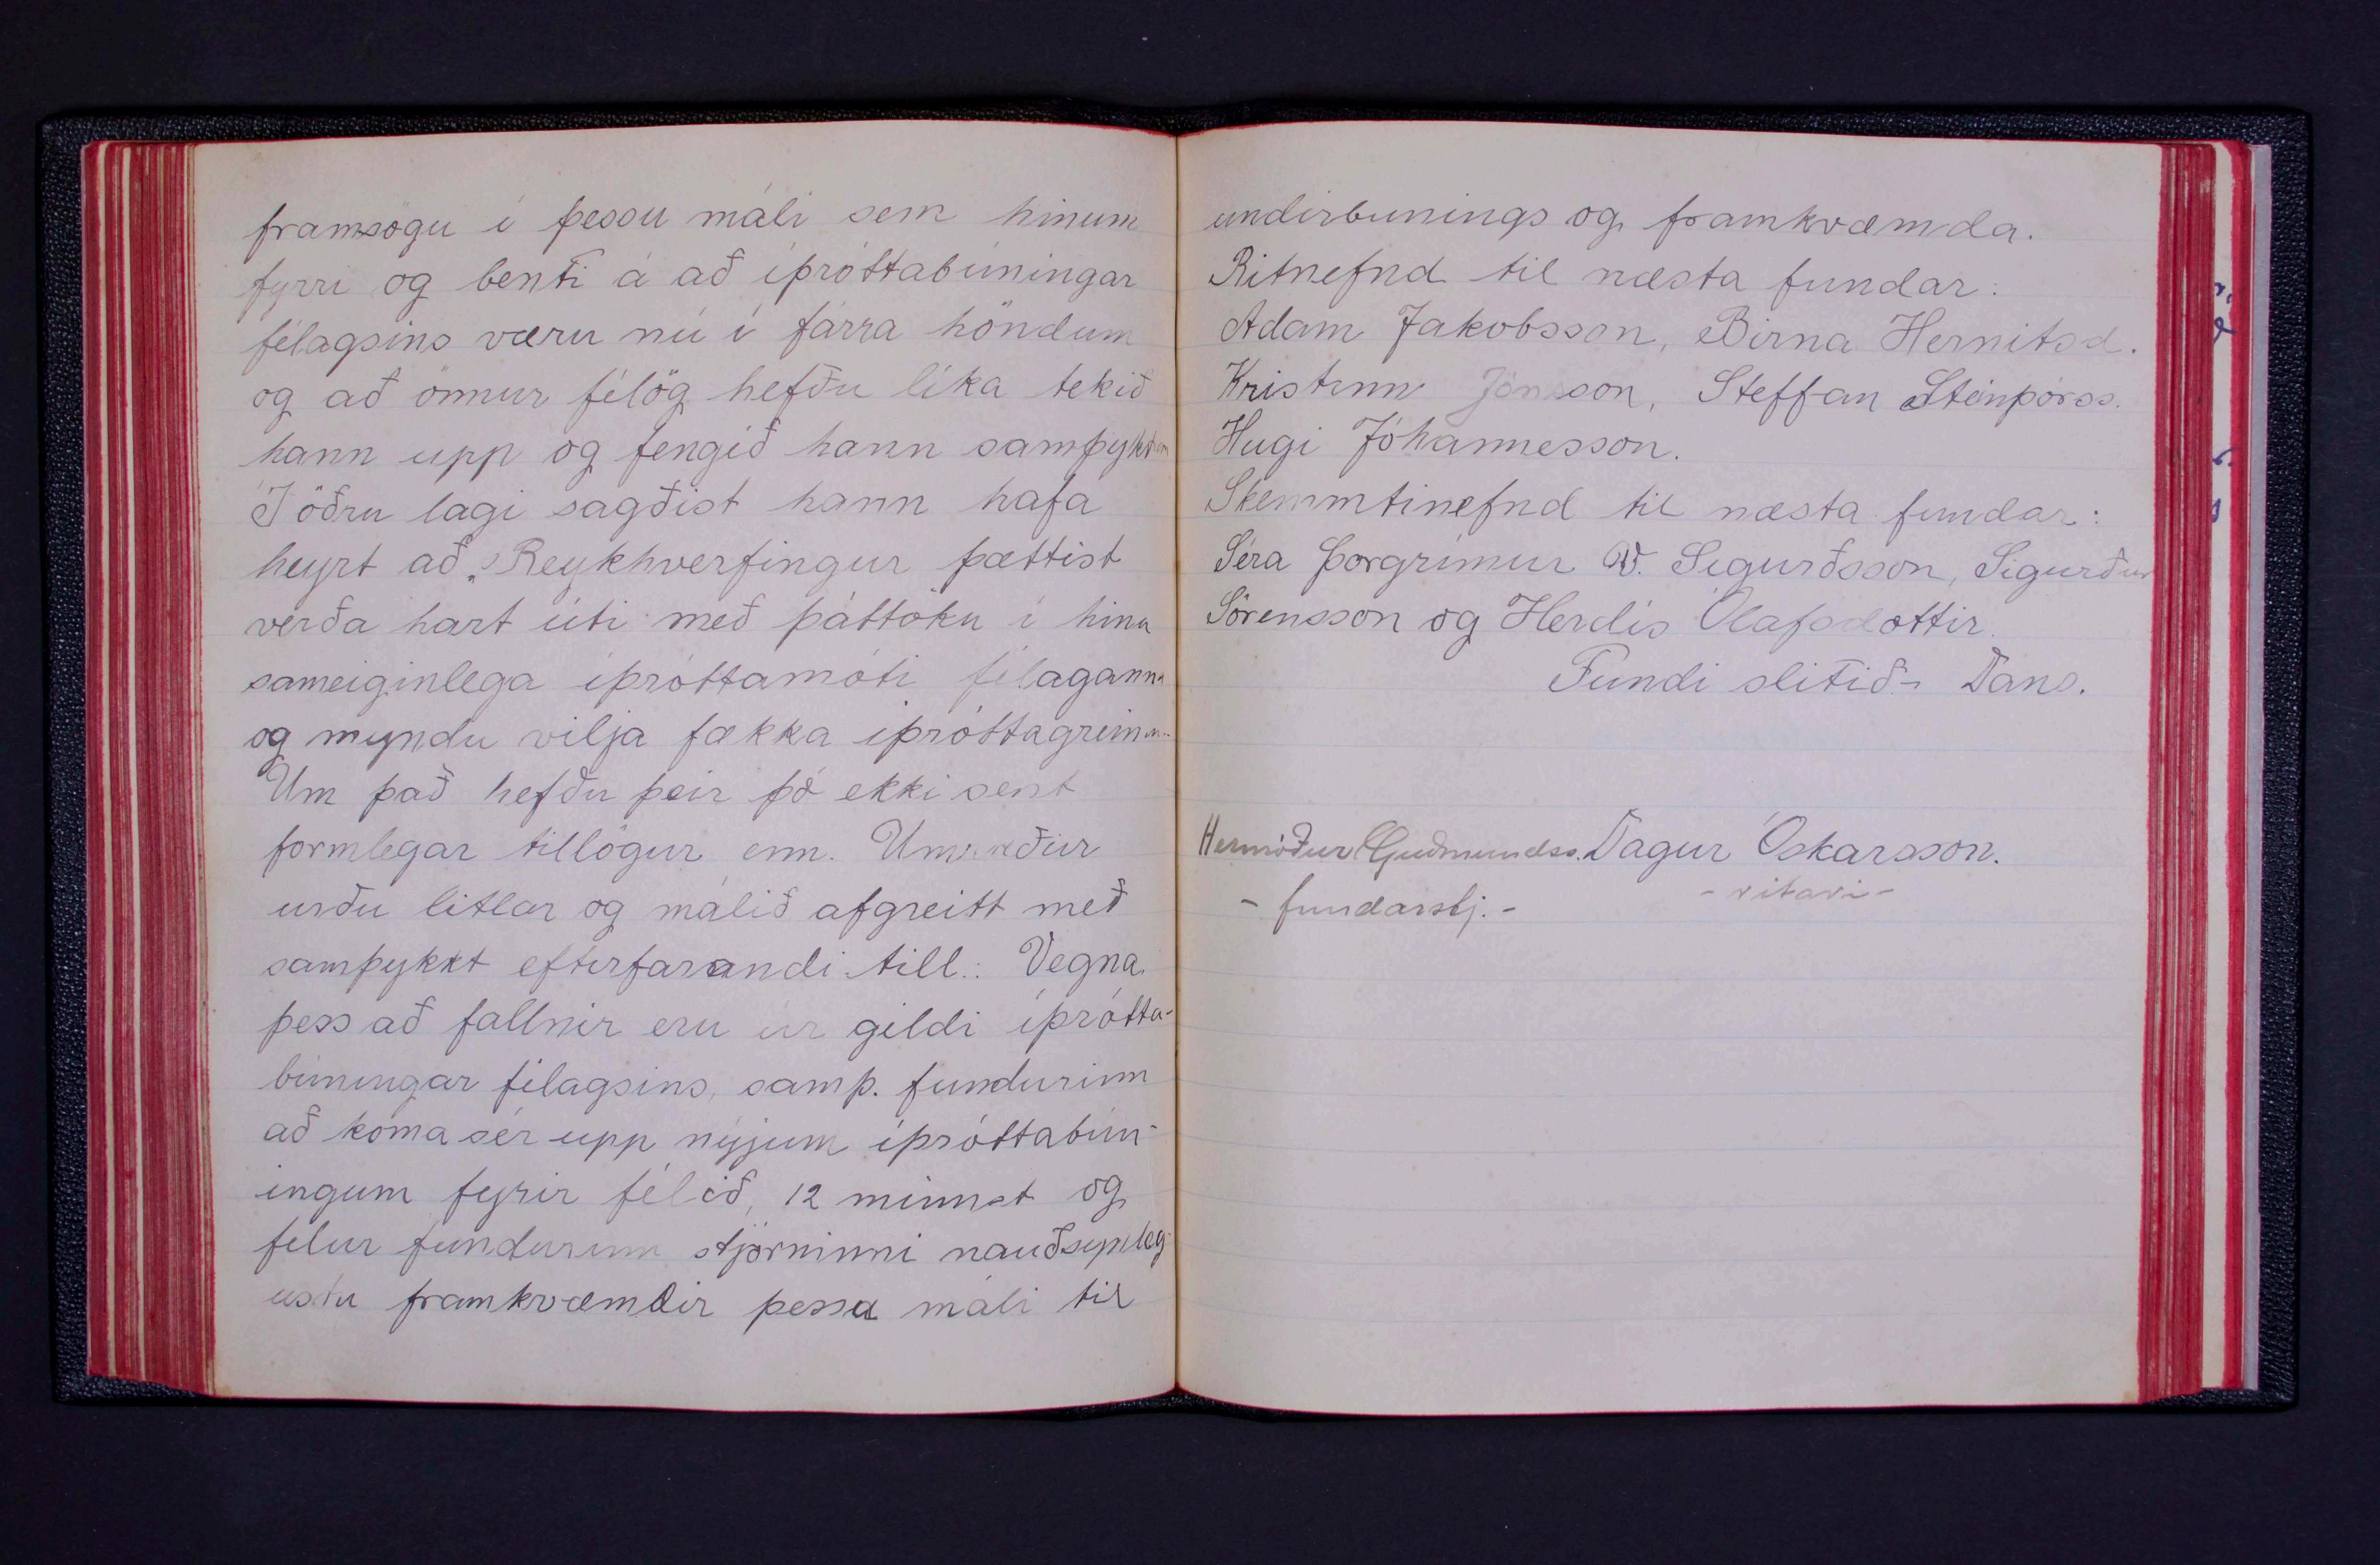 framsögu í þessu máli sem hinum
fyrri og benti á að íþróttabúningar
félagsins væru nú í fárra höndum
og að önnur félög hefðu líka tekið
hann upp og fengið hann samþykktan
Í öðru lagi sagðist hann hafa
heyrt að „Reykhverfingur þættist
verða hart úti með þáttöku í hinu
sameiginlega íþróttamóti félaganna
og myndu vilja fækka íþróttagreinum.
Um það hefðu þeir þó ekki sent
formlegar tillögur enn. Umræður
urðu litlar og málið afgreitt með
samþykkt efterfarandi till.: Vegna
þess að fallnir eru úr gildi íþrótta-
búningar félagsins, samþ. fundurinn
að koma sér upp nýjum íþróttabún-
ingum fyrir félið, 12 minnst og
felur fundurinn stjórninni nauðsynleg-
ustu framkvæmdir þessu máli til
undirbunings og framkvæmda.
Ritnefnd til næsta fundar:
Adam Jakobsson, Birna Hernitsd.
Kristinn Jónsson, Steffan Steinþórss.
Hugi Jóhannesson.
Skemmtinefnd til næsta fundar:
Séra Þorgrímur V. Sigurðsson, Sigurður
Sörensson og Herdís Ólafsdottir.
Fundi slitið - Dans.
Hermóður Guðmundss. Dagur Óskarsson.
- fundarstj. - - ritari -